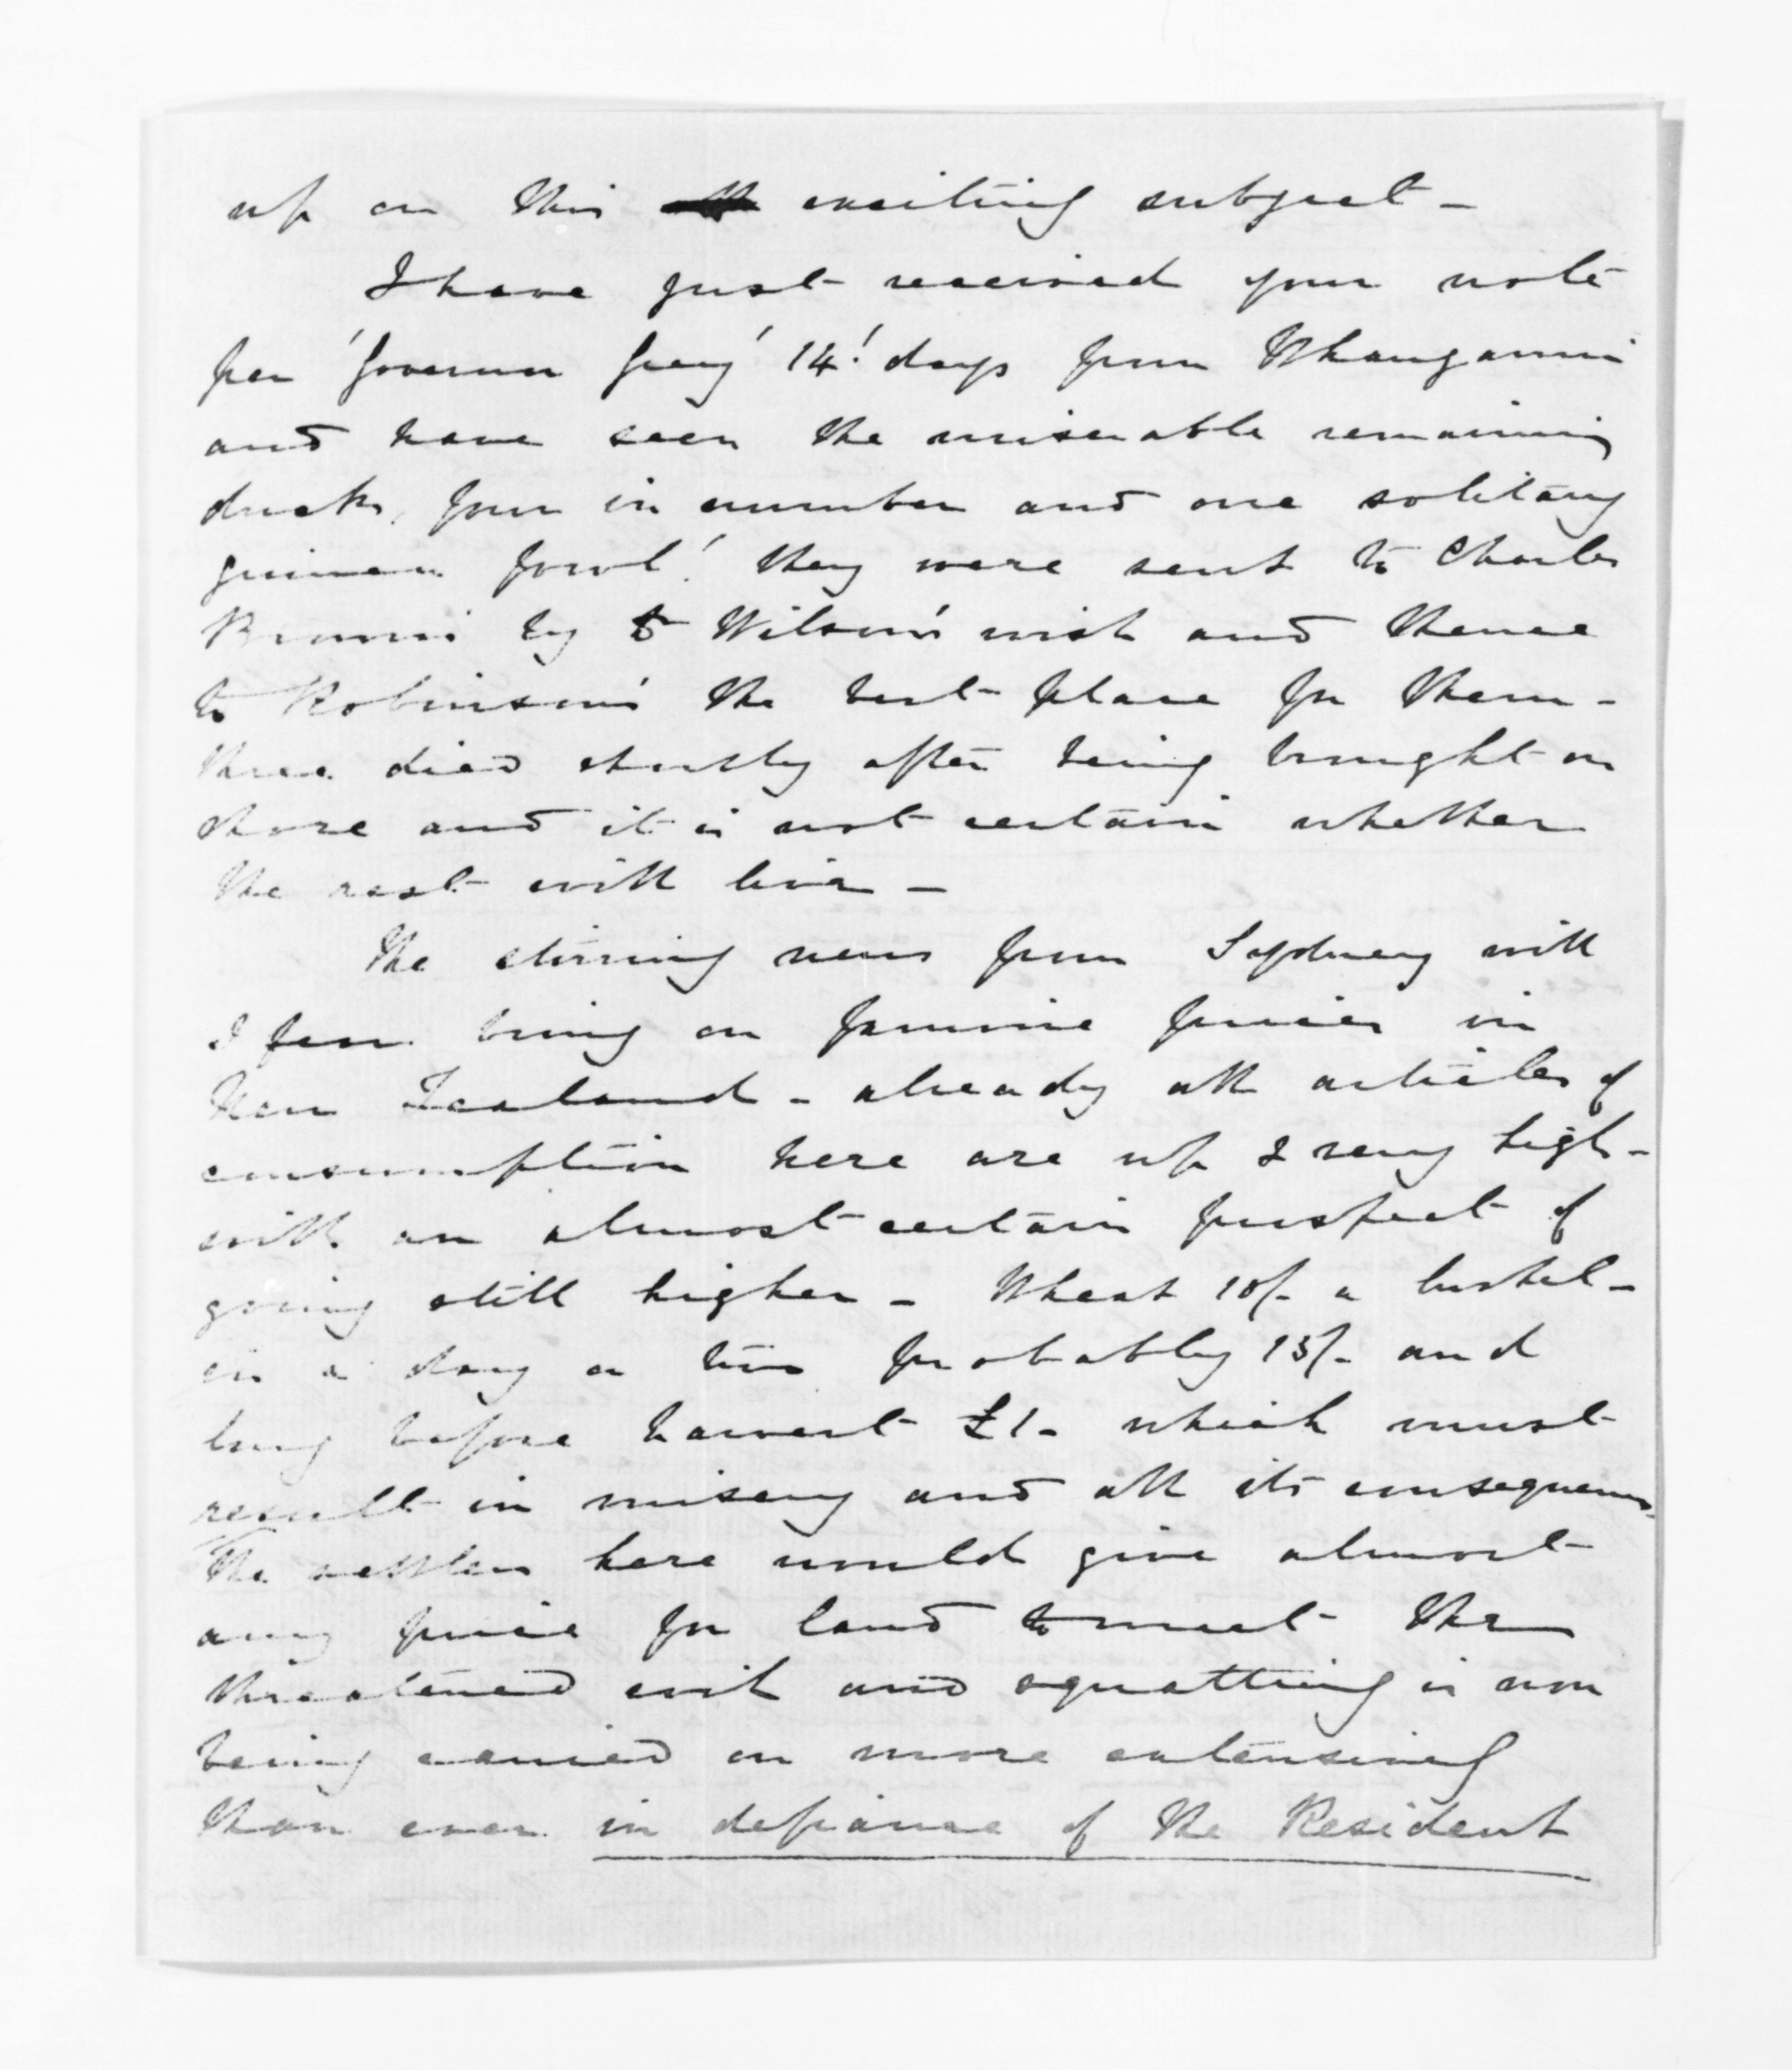 up on this exciting subject -
I have just received your note
per 'Governor Grey' 14! days from Whanganui
and have seen the miserable remaining
ducks, four in number and one solitary
guinea fowl! they were sent to Charles
Brown's by Wilson's wish and thence
to Robinson's the best place for them -
three died shortly after being brought on
shore and it is not certain whether
the rest will live -
The stirring news from Sydney will
I fear bring on famine prices in
New Zealand - already all articles of
consumption here are up & very high -
with an almost certain prospect of
going still higher - Wheat 10/- a bushel -
in a day or two probably 15/- and
long before harvest £1 - which must
result in misery and all its consequences
The settlers here would give almost
any price for land to meet the
threatened evil and squatting is now
being carried on more extensively
than ever in defiance of the Resident